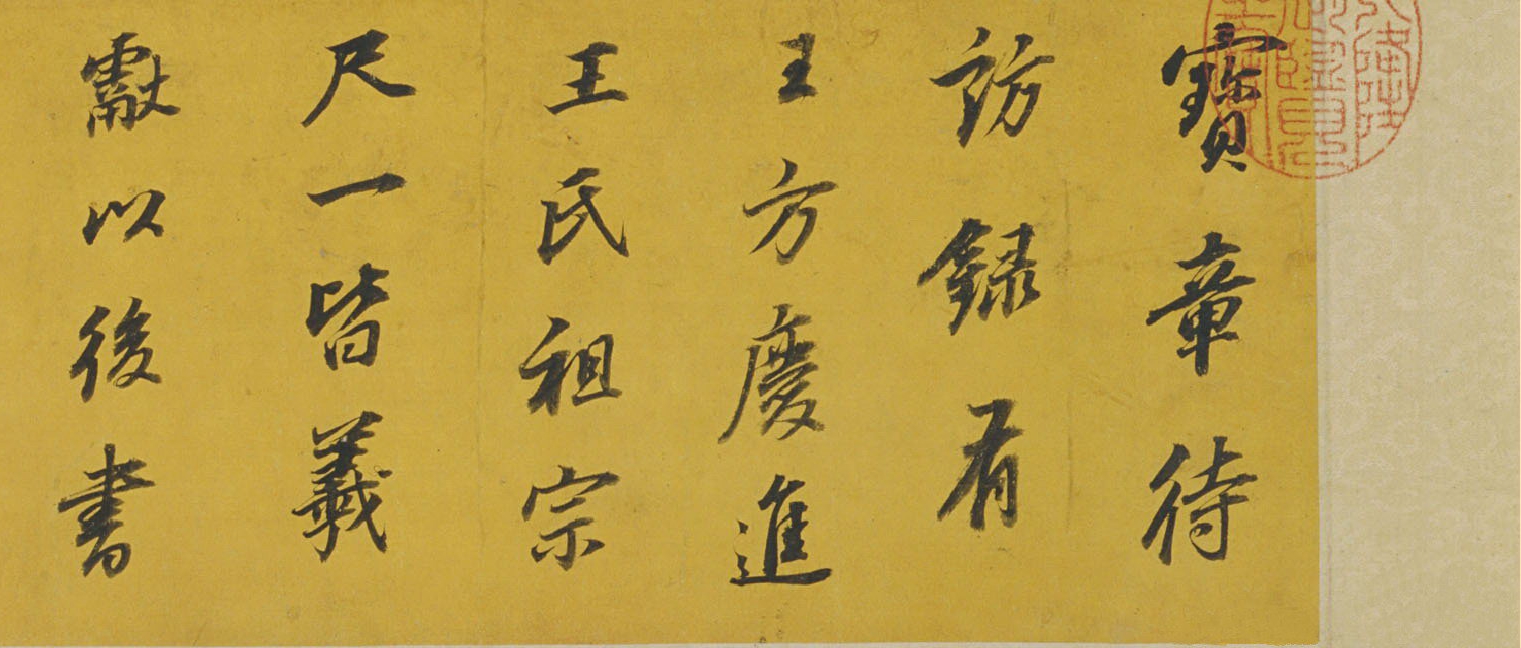 寶章待
訪録有
王方慶進
王氏祖宗
尺一皆羲
獻以後書